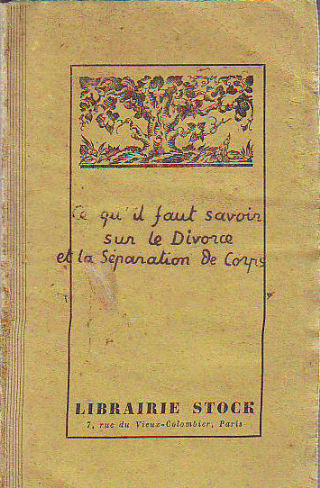 Ce qu'il faut savoir
sur le Divorce
et la Separation de Corps
LIBRAIRIE STOCK
7, rue du Vieux-Colombier, Paris